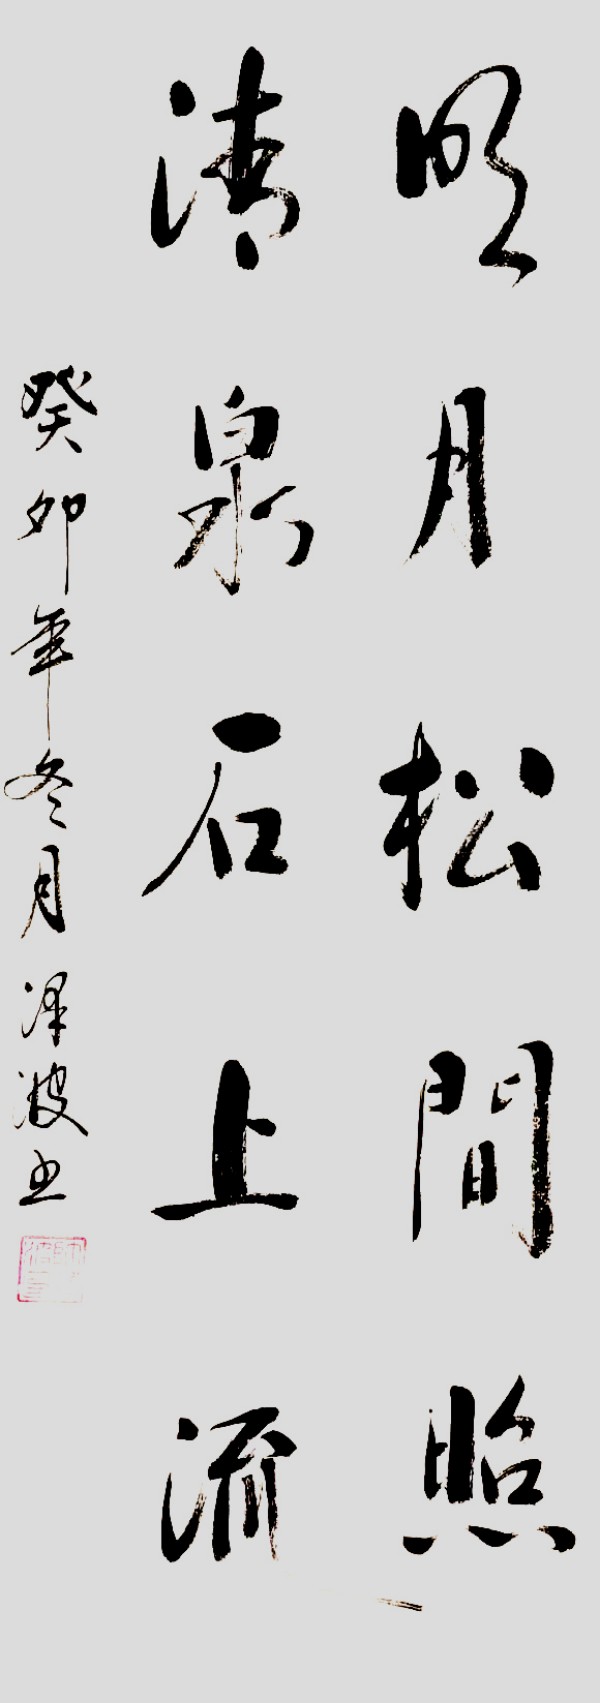 明月松間照
清泉石上流
癸卯年冬月泽波书